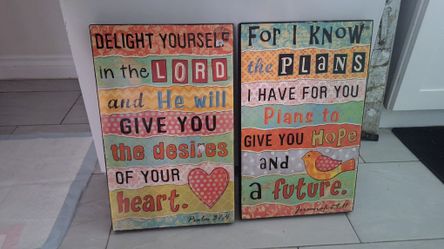 DELIGHT YOURSELF
in the LORD
and He will
GIVE YOU
the desires
OF YOUR
heart.
Psalm 37:4
For I KNOW
the PLANS
I HAVE FOR YOU
Plans to
GIVE YOU HOPE
and
a future.
Jeremiah 29:11